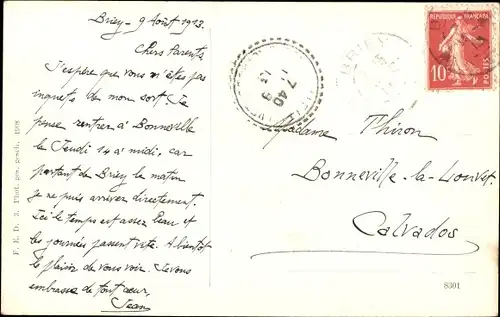 Briey - 9 Août 1913.
Chers Parents
J'espère que vous n'êtes pas
inquiets de mon sort Je
pense rentrer à Bonneville
le Jeudi 14 à midi, car
partant de Briey le matin
je ne puis arriver directement.
Ici le temps est assez beau et
les journées passent vite. A bientôt
le plaisir de vous voir. Je vous
embrasse de tout cœur,
Jean
REPUBLIQUE FRANÇAISE
10
POSTES
BRIEY
7 40
Madame Thiron
Bonneville-la-Louvet
Calvados
8301